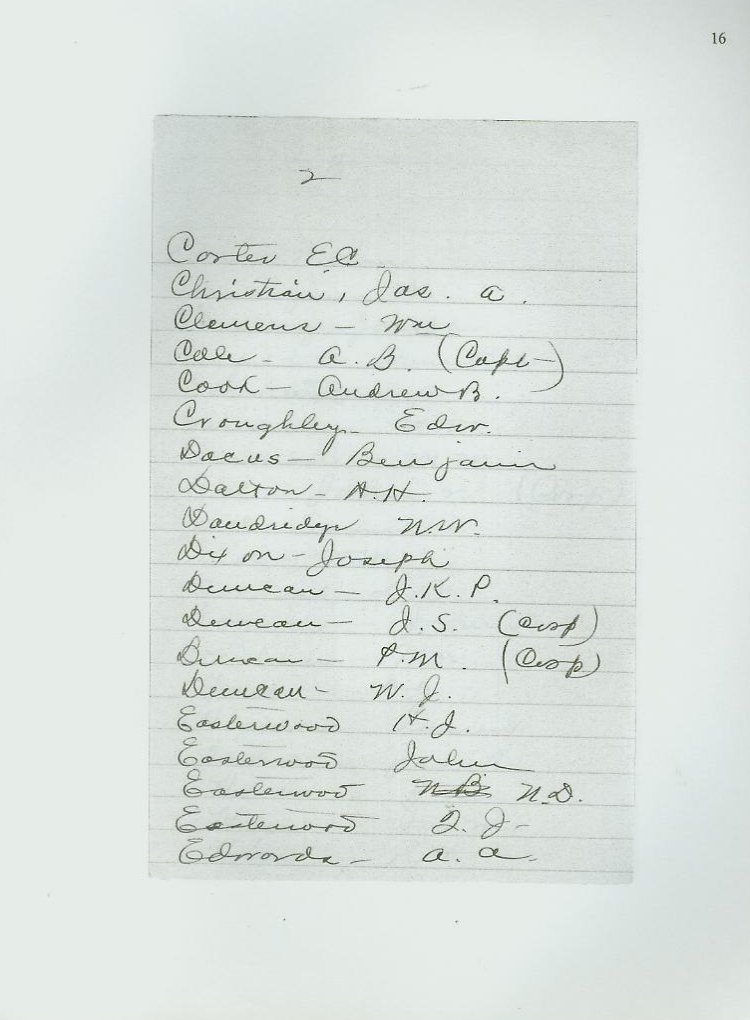 16
2
Carter EC
Christian, Jas. A.
Clemens - Wm
Cole - A. B. (Capt)
Cook - Andrew B.
Croughley - Edw.
Dacus - Benjamin
Dalton - A.H.
Dandridge N.W.
Dixon - Joseph
Duncan - J.K.P.
Duncan - J.S. (Corp)
Duncan - P.M. (Corp)
Duncan - W.J.
Easterwood H.J.
Easterwood John
Easterwood N B N.D.
Easterwood J-
Edwards - A. A.